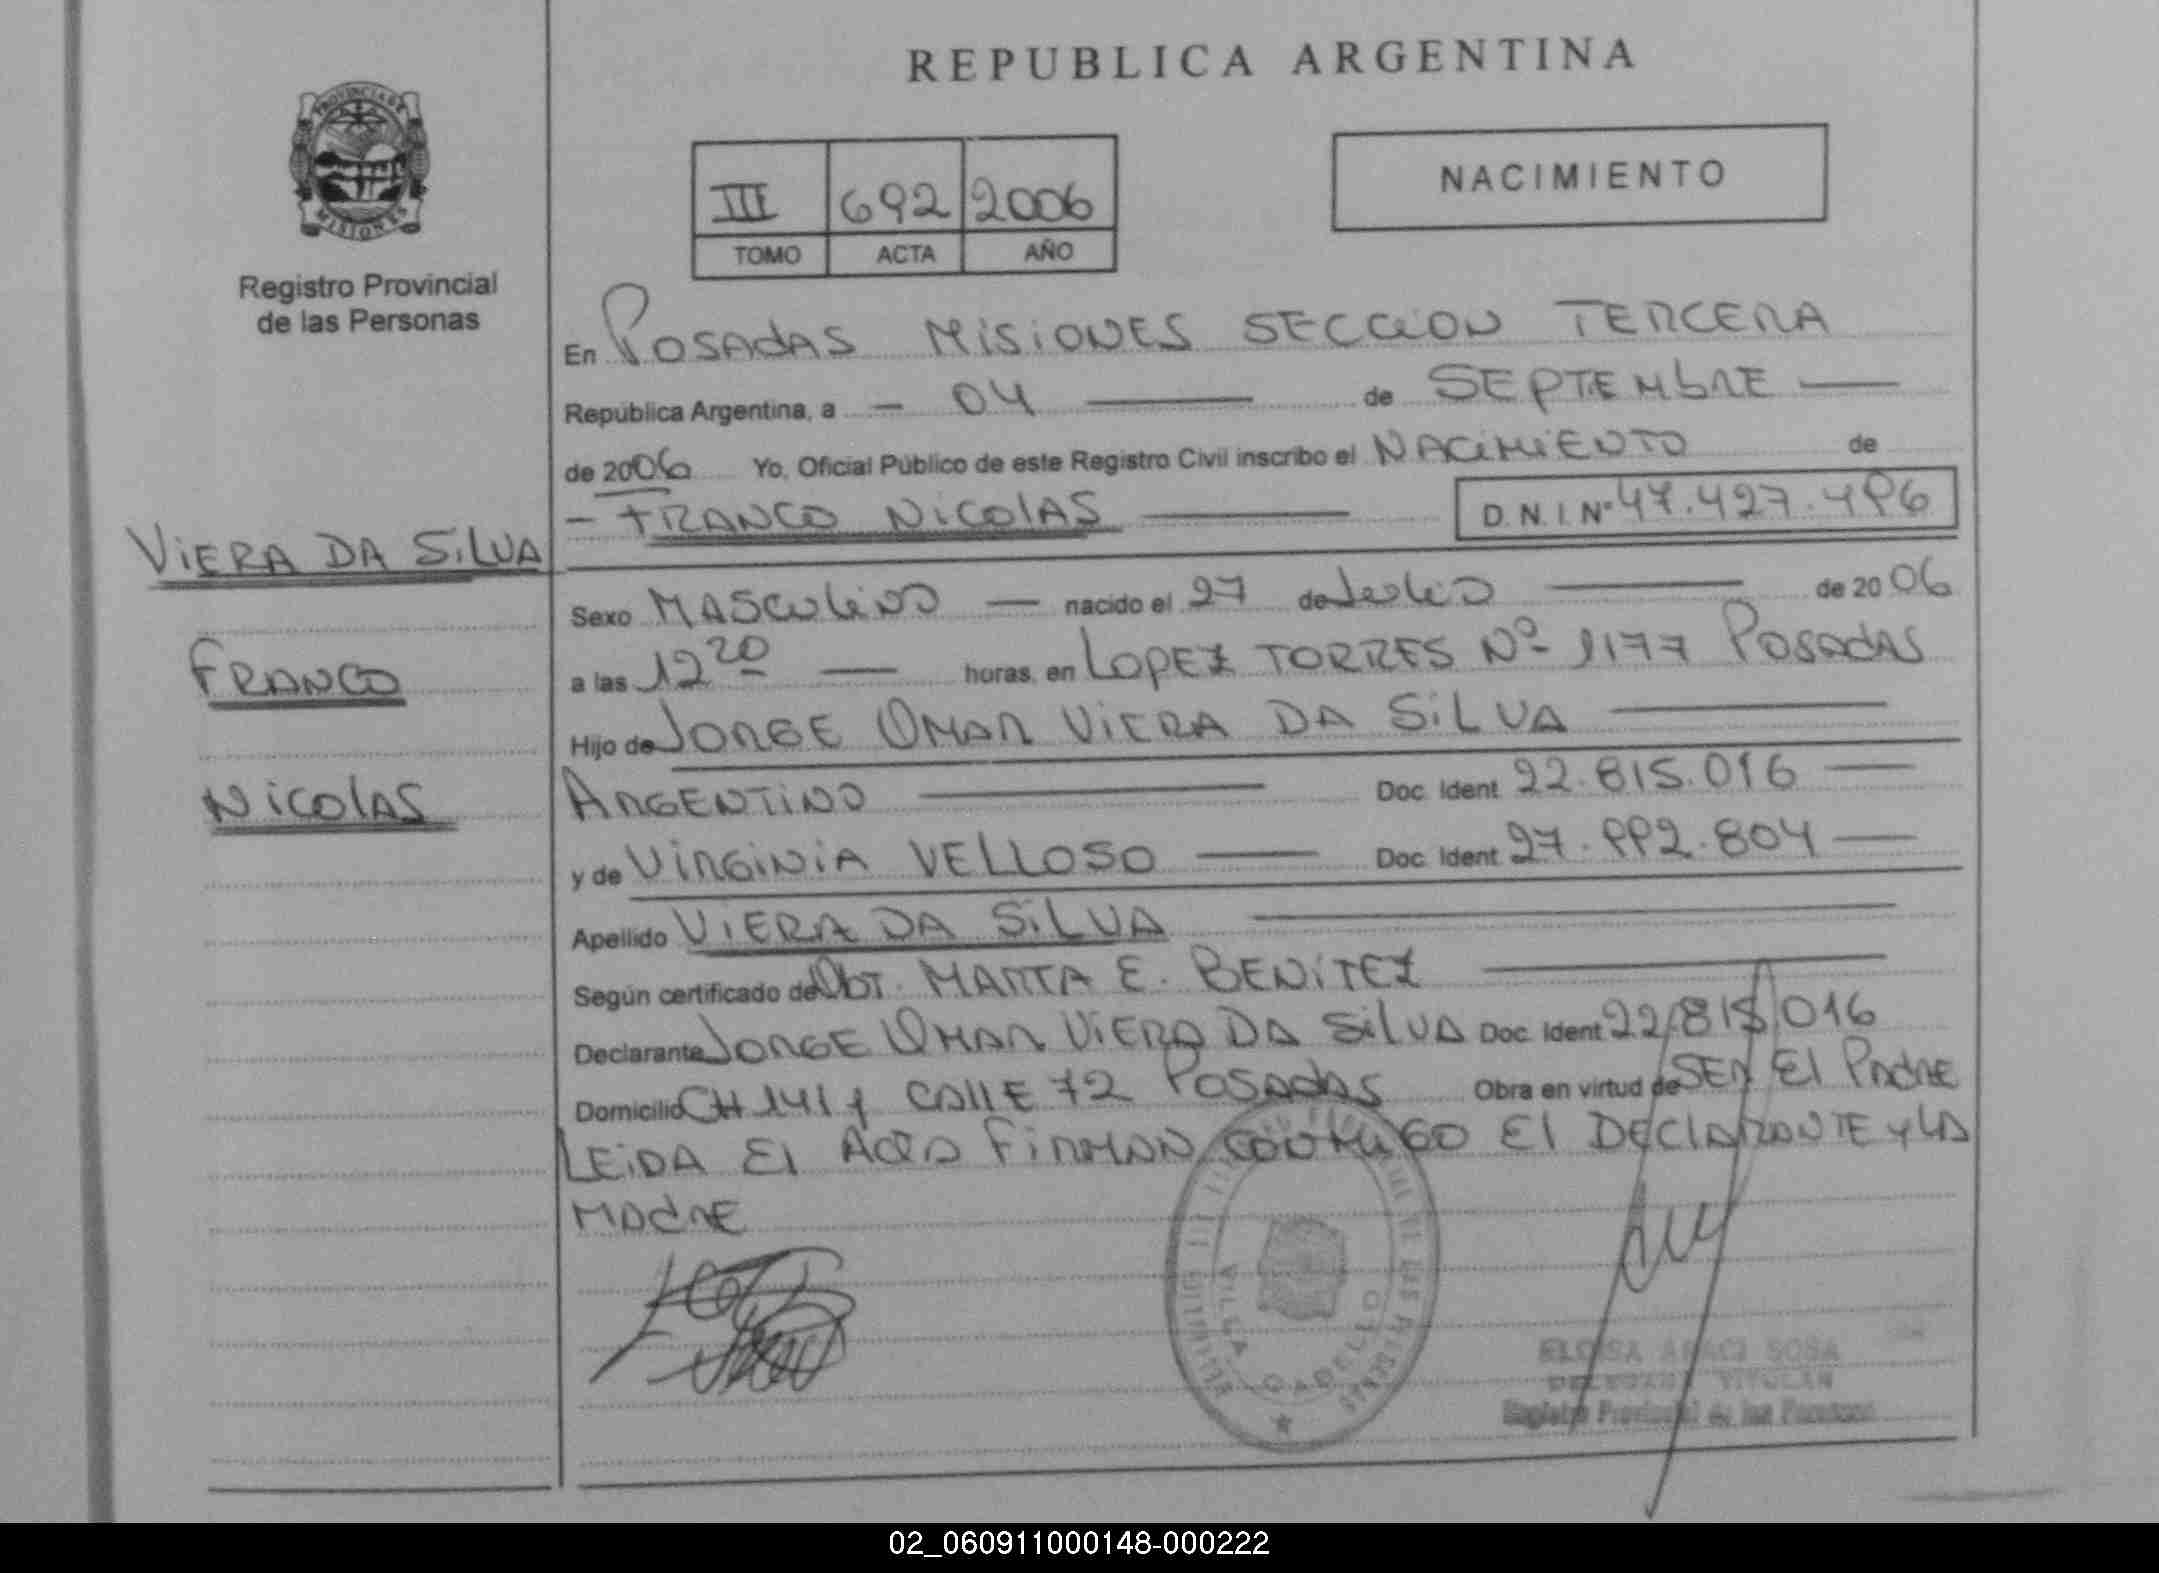 REPUBLICA ARGENTINA
PROVINCIA DE
MISIONES
Registro Provincial
de las Personas
III 692 2006
TOMO ACTA AÑO
NACIMIENTO
En POSADAS MISIONES SECCION TERCERA
República Argentina, a - 04 — de SEPTEMBRE —
de 2006 Yo, Oficial Público de este Registro Civil inscribo el NACIMIENTO de
- FRANCO NICOLAS — D.N.I. Nº 47.427.496
VIERA DA SILVA
FRANCO
NICOLAS
Sexo MASCULINO — nacido el 27 de Julio — de 20 06
a las 12 20 — horas, en LOPEZ TORRES Nº 1177 POSADAS
Hijo de JORGE OMAR VIERA DA SILVA —
ARGENTINO — Doc. Ident. 22.815.016 —
y de VIRGINIA VELLOSO — Doc. Ident. 27.992.804 —
Apellido VIERA DA SILVA —
Según certificado de Obt. MARTA E. BENITEZ —
Declarante JORGE OMAR VIERA DA SILVA Doc. Ident. 22.815.016
Domicilio CH 141 y CALLE 72 POSADAS Obra en virtud de SER El PADRE
LEIDA El ACTA FIRMAN CONMIGO El DECLARANTE y LA
MADRE
VILLA CABELLO
ELOISA ARACI SOSA
DELEGADA TITULAR
Registro Provincial de las Personas
02_060911000148-000222